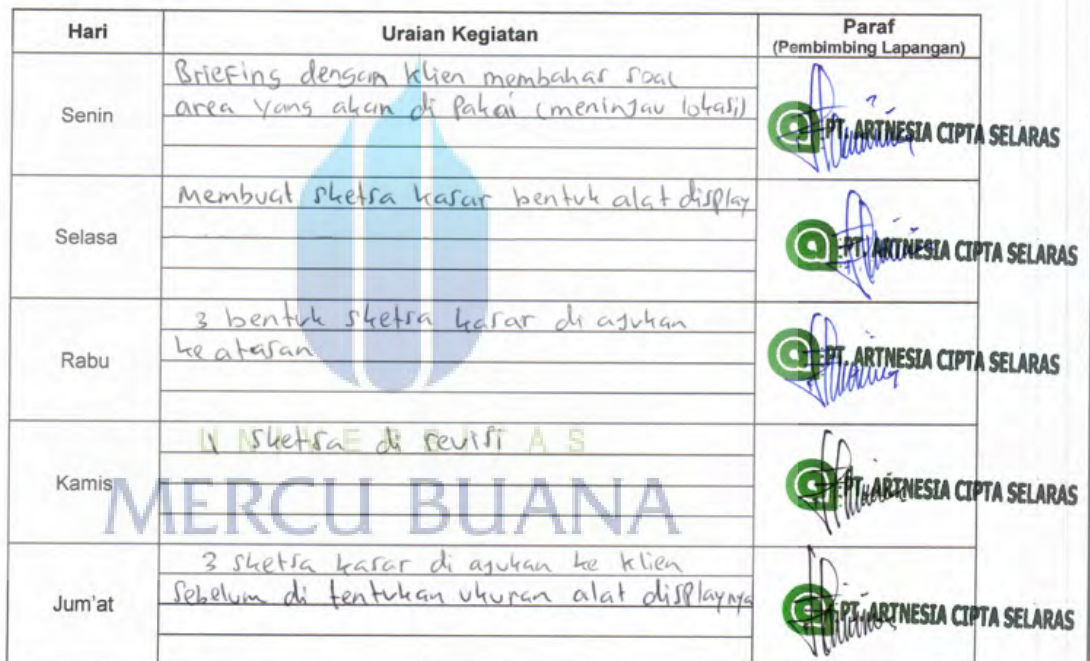 Hari
Uraian Kegiatan
Paraf
(Pembimbing Lapangan)
Senin
Briefing dengan klien membahas soal
area yang akan di pakai (meninjau lokasi)
PT. ARTNESIA CIPTA SELARAS
Selasa
Membuat sketsa kasar bentuk alat display
PT. ARTNESIA CIPTA SELARAS
Rabu
3 bentuk sketsa kasar di ajukan
ke atasan
PT. ARTNESIA CIPTA SELARAS
Kamis
1 sketsa di revisi
PT. ARTNESIA CIPTA SELARAS
UNIVERSITAS
MERCU BUANA
Jum'at
3 sketsa kasar di ajukan ke klien
sebelum di tentukan ukuran alat displaynya
PT. ARTNESIA CIPTA SELARAS